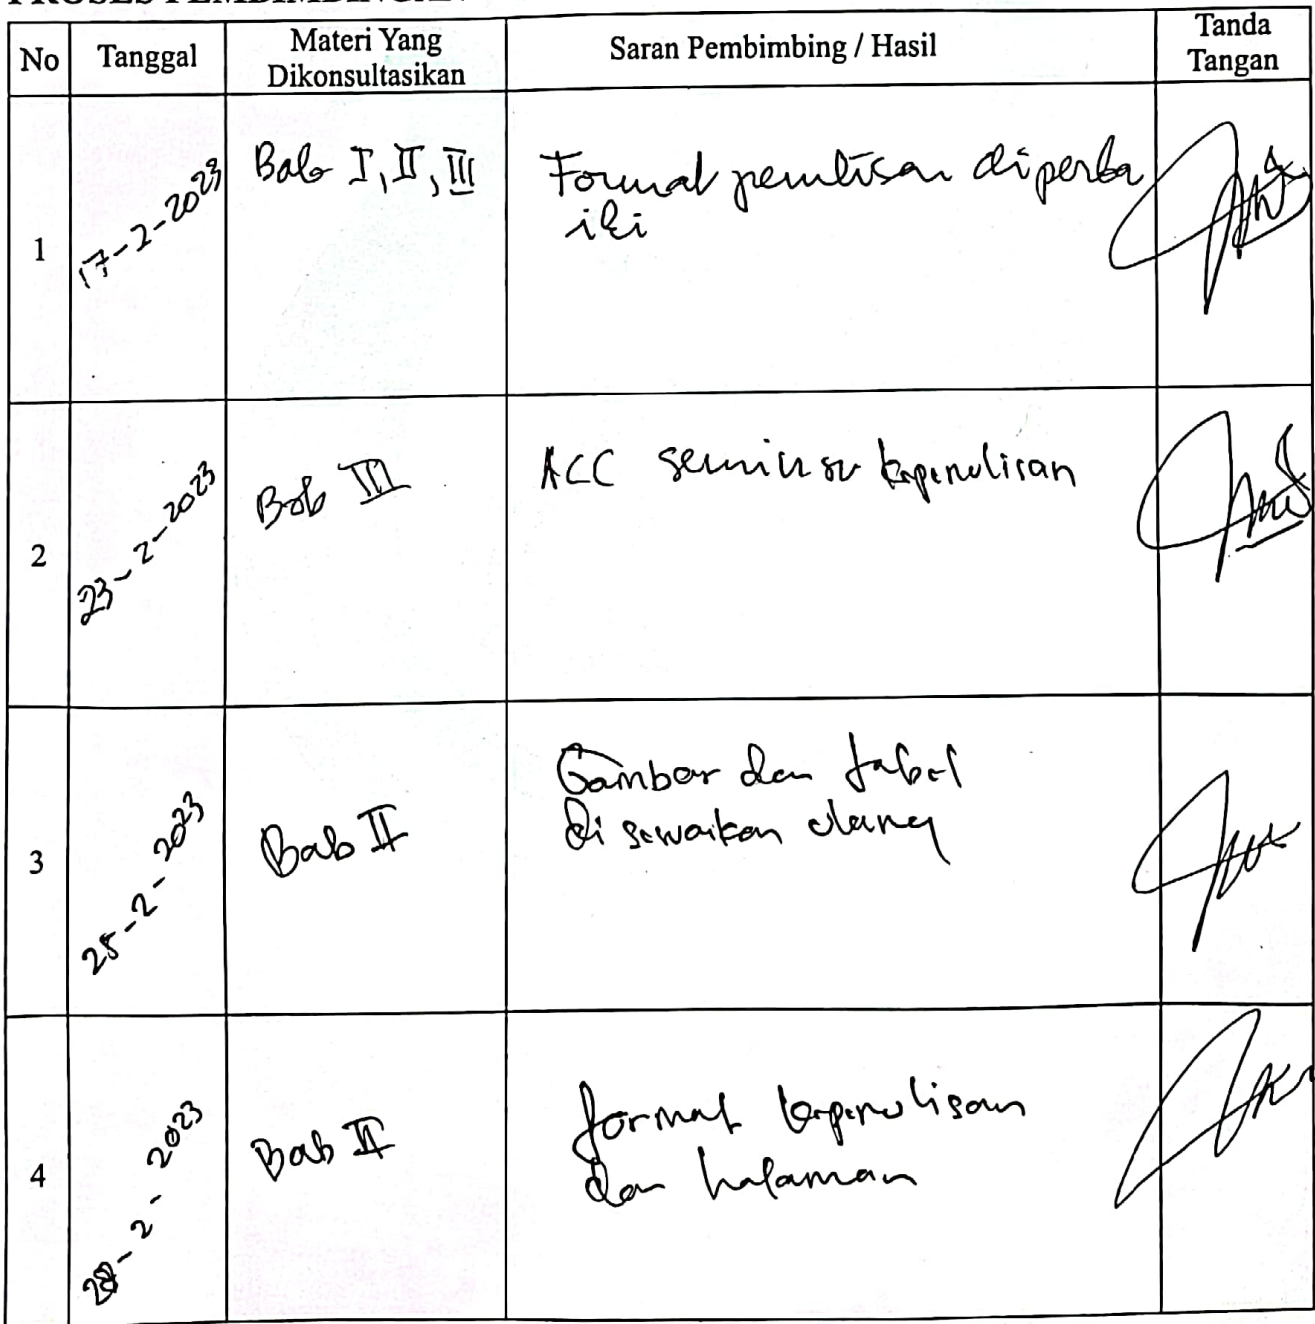 No Tanggal Materi Yang Dikonsultasikan Saran Pembimbing / Hasil Tanda Tangan
1 17-2-2023 Bab I, II, III Format penulisan diperba
iki
2 23-2-2023 Bab III ACC seminar kepenulisan
3 25-2-2023 Bab II Gambar dan tabel
di sesuaikan ulang
4 28-2-2023 Bab II format kepenulisan
dan halaman